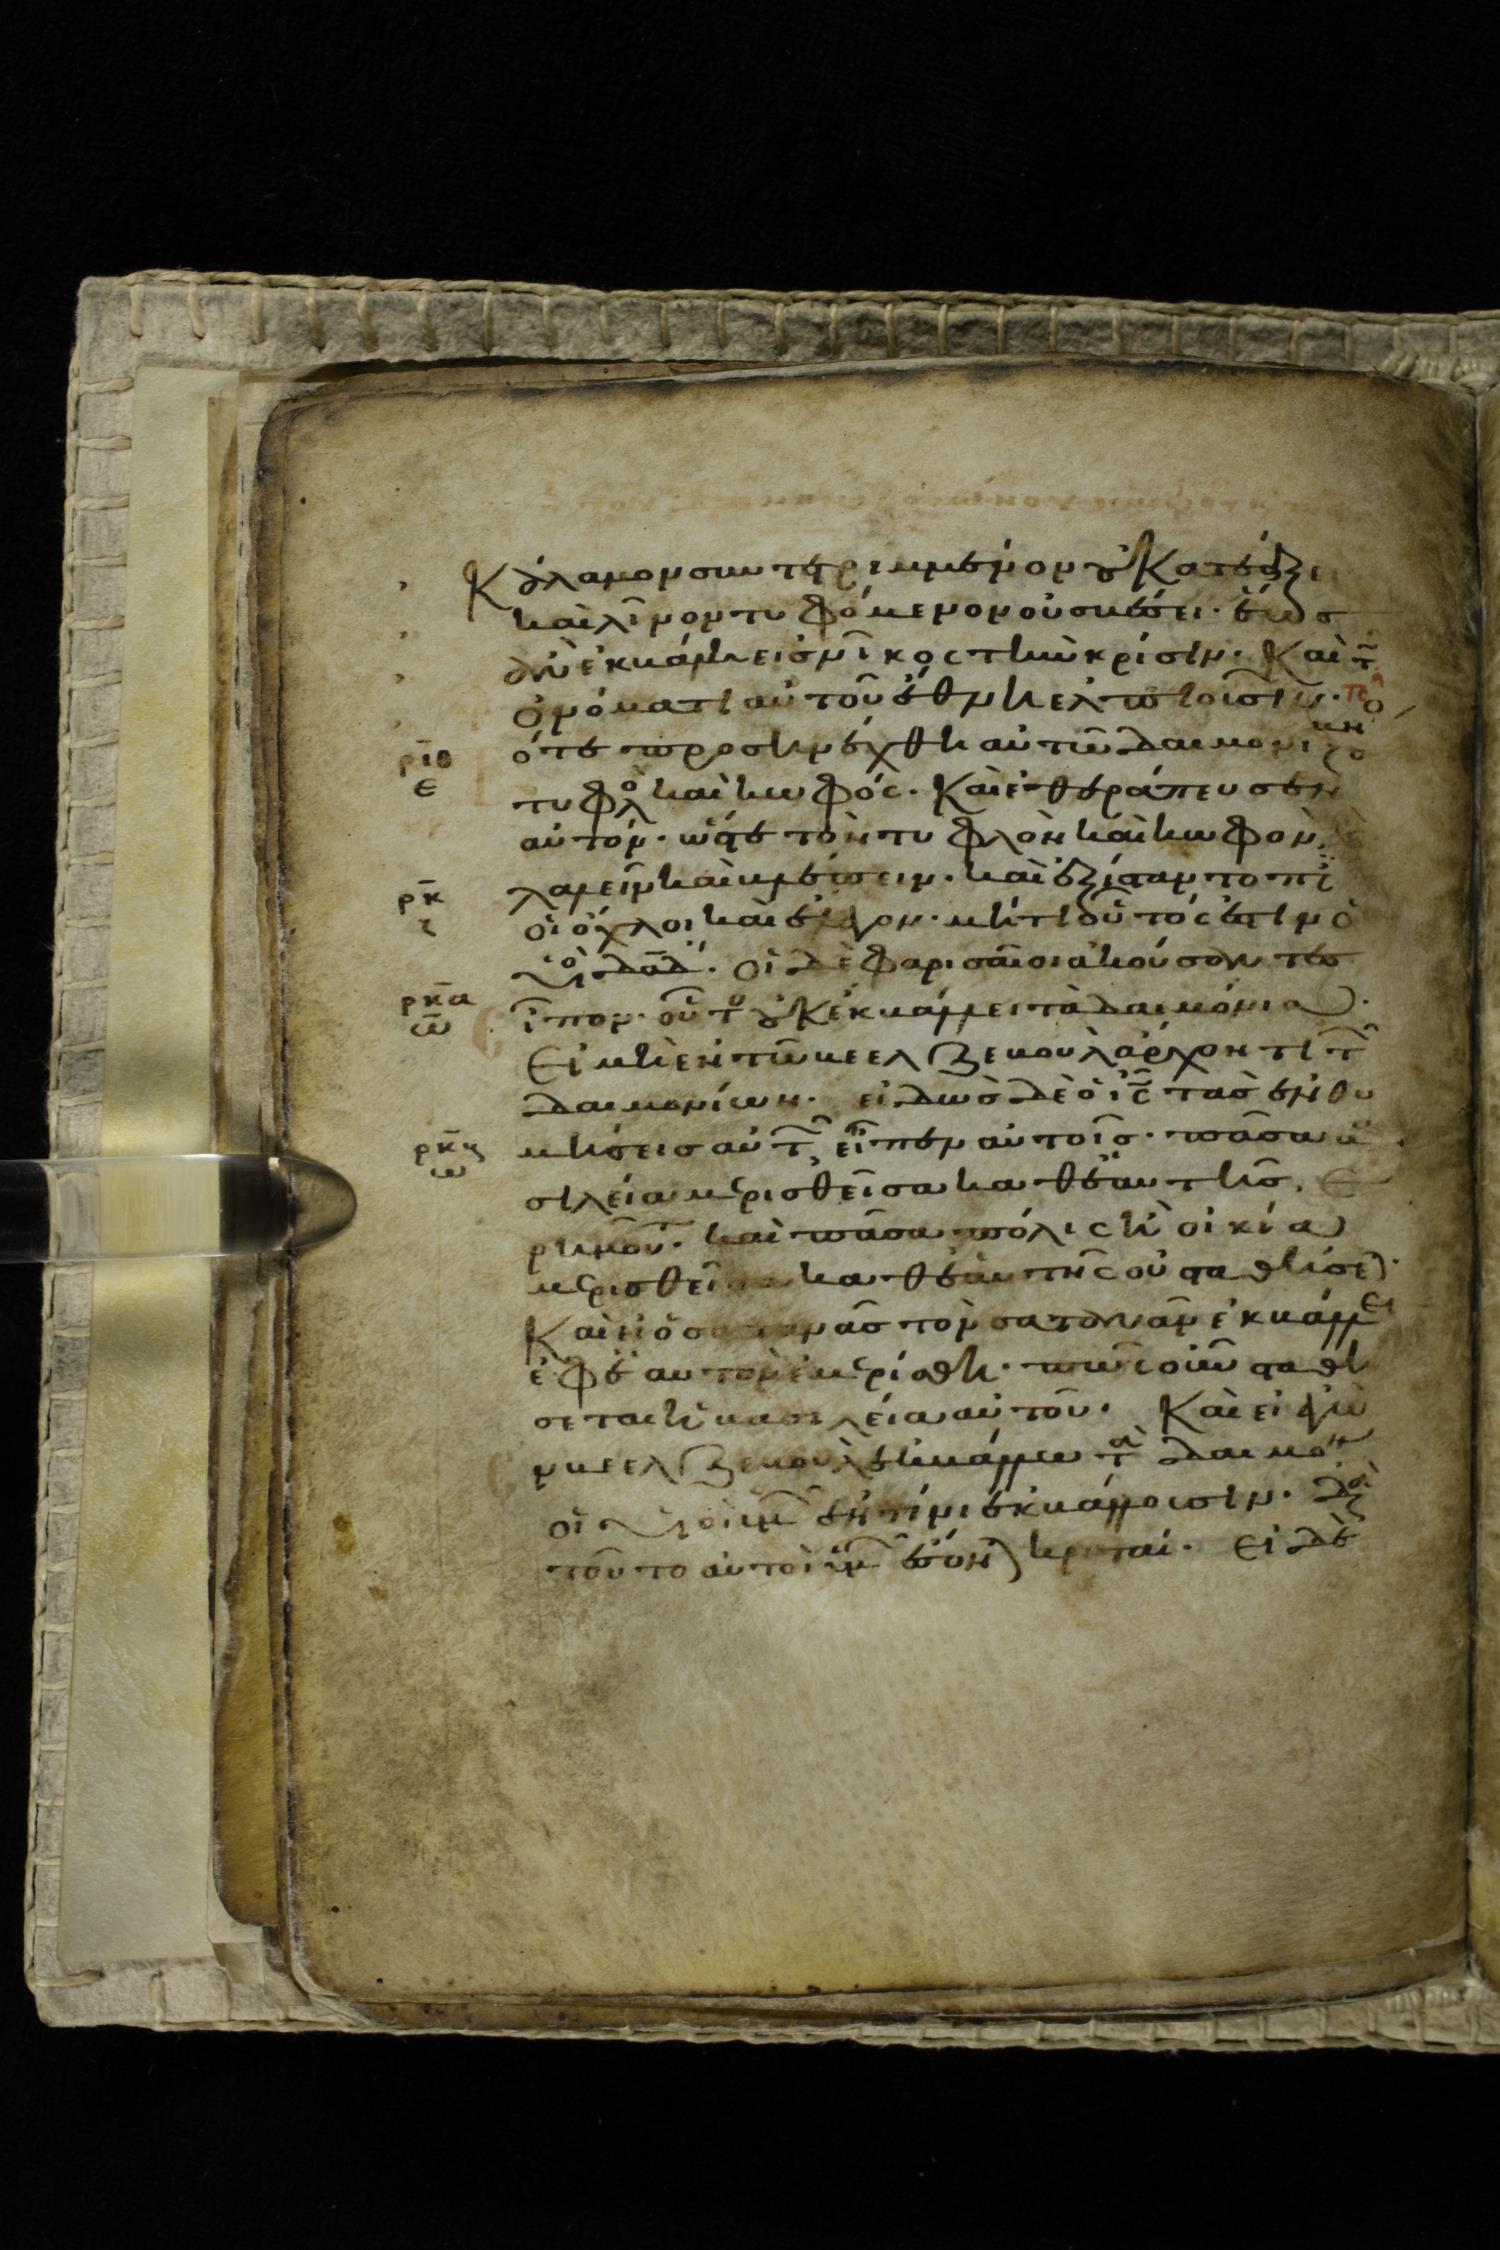 Κάλαμον συντετριμμένον οὐ κατεάξει
καὶ λίνον τυφόμενον οὐ σβέσει· ἕως
ἂν ἐκβάλη εἰς νῖκος τὴν κρίσιν. Καὶ τῶ
ὀνόματι αὐτοῦ ἔθνη ἐλπιοῦσιν·
ριθ ε τότε προσηνέχθη αὐτῶ δαιμονιζο
τυφλὸς καὶ κωφός. Καὶ ἐθεράπευσεν
αὐτόν· ὥστε τὸν τυφλὸν καὶ κωφὸν
ρκ ζ λαλεῖν καὶ βλέπειν· καὶ ἐξίσταντο π
οἱ ὄχλοι καὶ ἔλεγον· μήτι οὗτός ἐστιν ὁ
υἱὸς δαδ. Οἱ δὲ φαρισαῖοι ἀκούσαντες
ρκα ω εἶπον· οὗτος οὐκ ἐκβάλλει τὰ δαιμόνια.
Εἰ μὴ ἐν τῶ βεελζεβουλ ἄρχοντι τῶν
δαιμονίων. εἰδὼς δὲ ὁ ις τὰς ἐνθυ
ρκβ ω μήσεις αὐτῶν, εἶπεν αὐτοῖς· πᾶσα βα
σιλεία μερισθεῖσα καθ' ἑαυτῆς, ἐ
ρημοῦται· καὶ πᾶσα πόλις ἢ οἰκία
μερισθεῖσα καθ' ἑαυτῆς οὐ σταθήσεται.
Καὶ εἰ ὁ σατανᾶς τὸν σατανᾶν ἐκβάλλει
ἐφ' ἑαυτὸν ἐμερίσθη· πῶς οὖν σταθή
σεται ἡ βασιλεία αὐτοῦ. Καὶ εἰ ἐγὼ
ἐν βεελζεβουλ ἐκβάλλω τὰ δαιμόνια
οἱ υἱοὶ ὑμῶν ἐν τίνι ἐκβάλλουσιν· διὰ
τοῦτο αὐτοὶ ὑμῶν ἔσονται κριταί. Εἰ δὲ